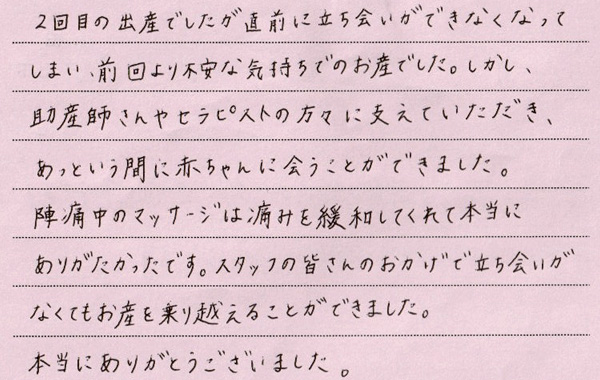 2回目の出産でしたが直前に立ち会いができなくなって
しまい、前回より不安な気持ちでのお産でした。しかし、
助産師さんやセラピストの方々に支えていただき、
あっという間に赤ちゃんに会うことができました。
陣痛中のマッサージは痛みを緩和してくれて本当に
ありがたかったです。スタッフの皆さんのおかげで立ち会いが
なくてもお産を乗り越えることができました。
本当にありがとうございました。